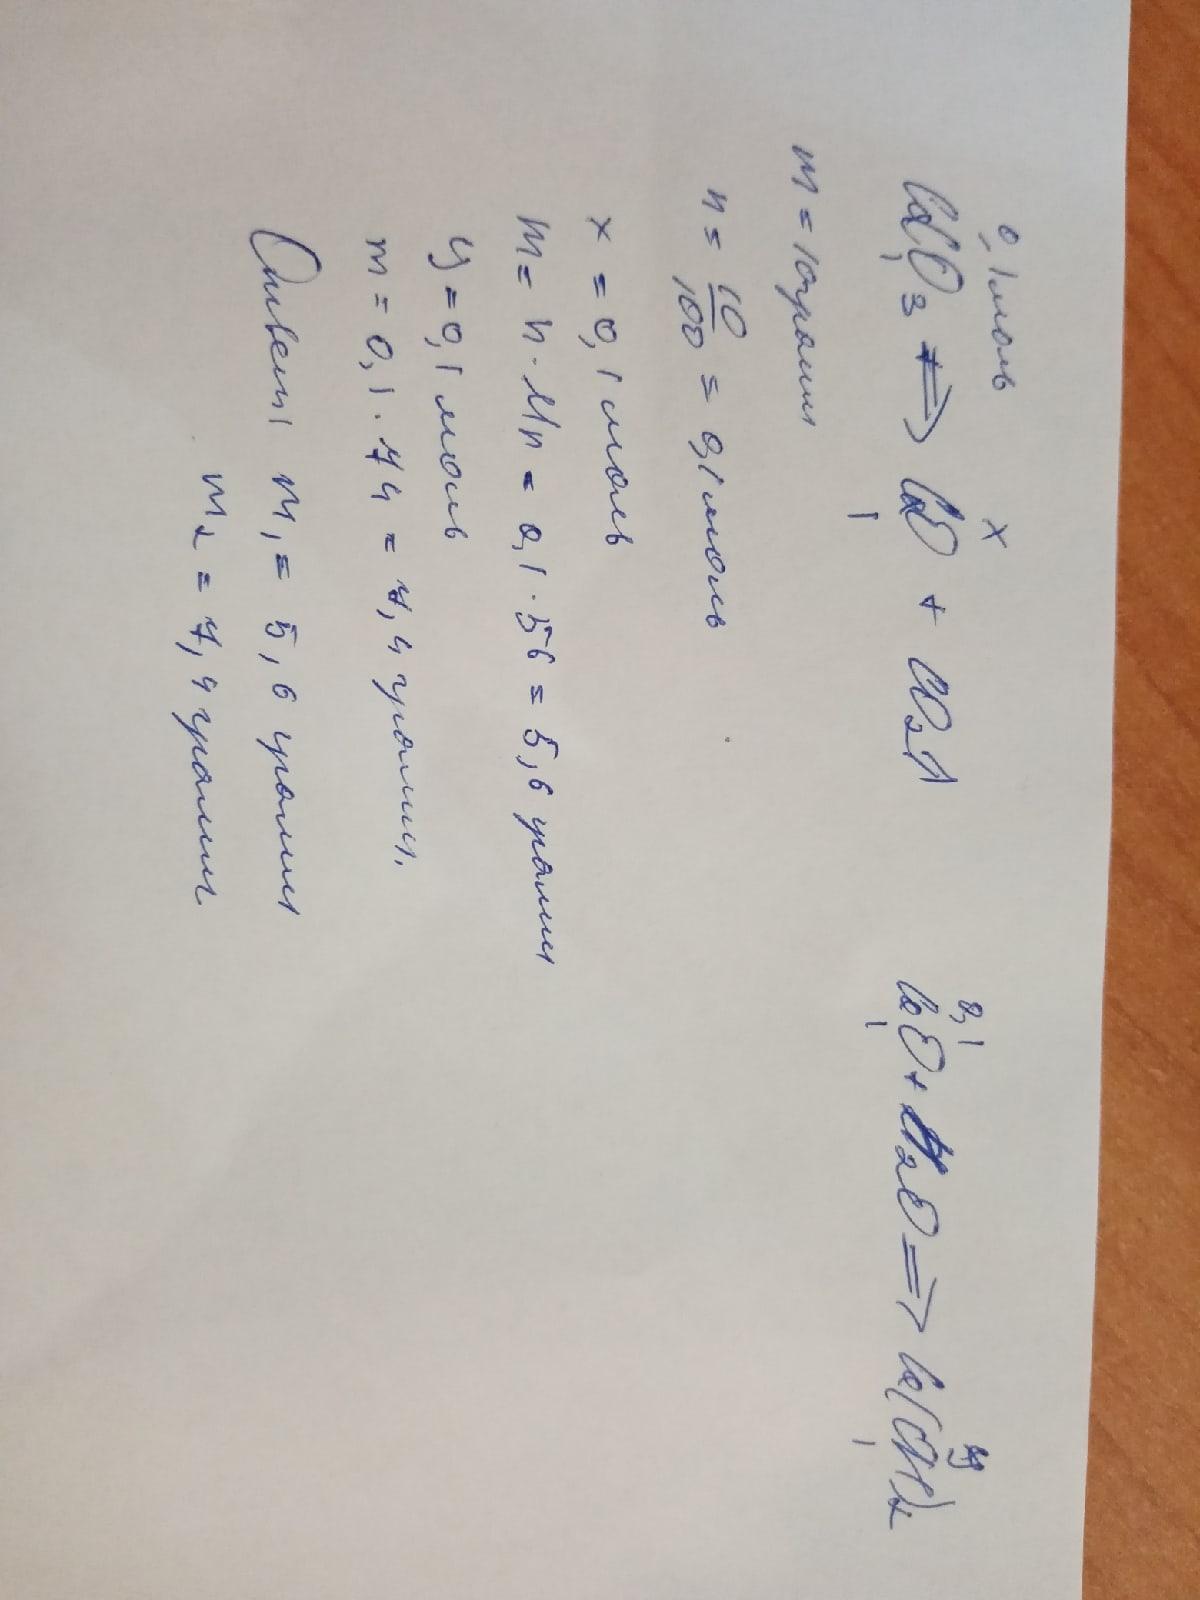 0,1 моль x 0,1 y
CaCO₃ ⇒ CaO + CO₂↑ CaO + H₂O ⇒ Ca(OH)₂
1 1 1 1
m = 10 грамм
n = 10/100 = 0,1 моль
x = 0,1 моль
m = n · Mr = 0,1 · 56 = 5,6 грамм
y = 0,1 моль
m = 0,1 · 74 = 7,4 грамм.
Ответ m₁ = 5,6 грамм
m₂ = 7,4 грамм